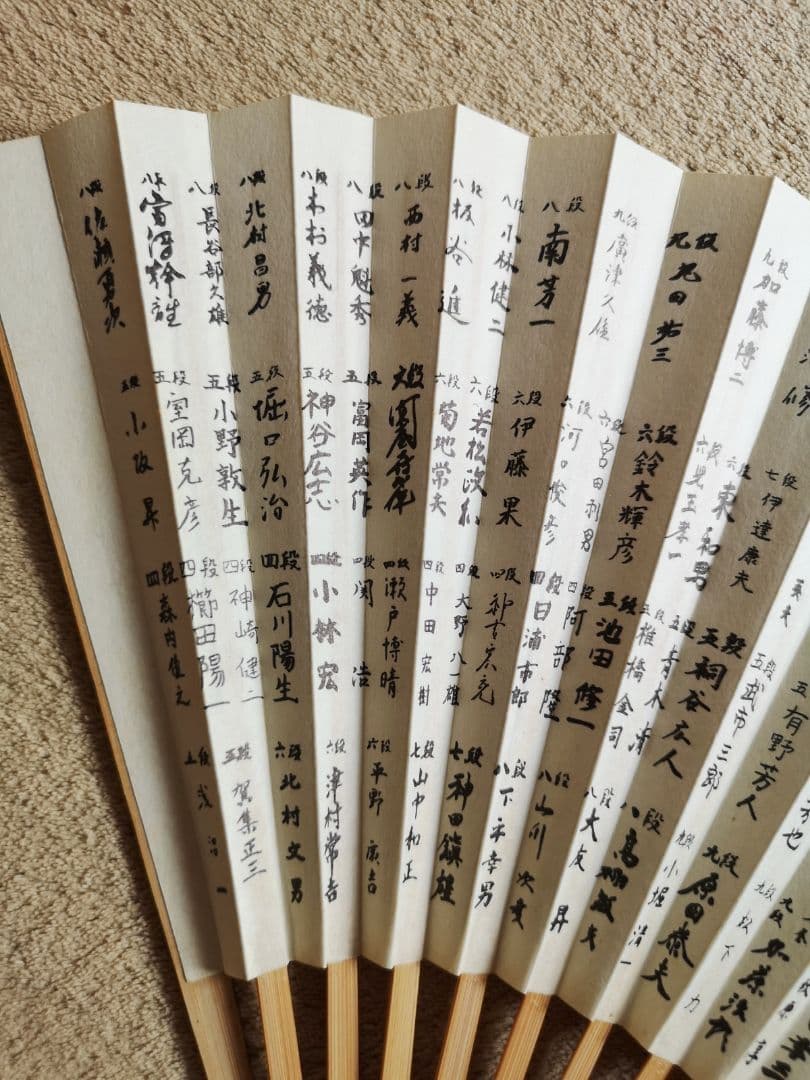 修
九段 加藤博二
九段 丸田祐三
九段 廣津久雄
八段 南芳一
八段 小林健二
八段 板谷進
八段 西村一義
八段 田中魁秀
八段 木村義徳
八段 北村昌男
八段 長谷部久雄
八段
八段 佐瀬勇次
七段 伊達康夫
六段 東和男
六段 児玉孝一
六段 鈴木輝彦
六段 宮田利男
六段 河口俊彦
六段 伊藤果
六段 若松政和
六段 菊地常夫
六段
五段 富岡英作
五段 神谷広志
五段 堀口弘治
五段 小野敦生
五段 室岡克彦
五段 小阪昇
五 有野芳人
五段 武市三郎
五段 祠谷広人
五段 青木清
五段 椎橋金司
五段 池田修一
四段 阿部隆
四段 日浦市郎
四段 神吉宏充
四段 大野八一雄
四段 中田宏樹
四段 瀬戸博晴
四段 関浩
四段 小林宏
四段 石川陽生
四段 神崎健二
四段 櫛田陽一
四段 森内俊之
九段 加藤治郎
九段 松下力
九段 原田泰夫
九段 小堀清一
八段 高柳敏夫
八段 大友昇
八段 山川次彦
八段 下平幸男
七段 神田鎮雄
七段 山中和正
六段 平野廣吉
六段 津村常吉
六段 北村文男
五段 賀集正三
五段